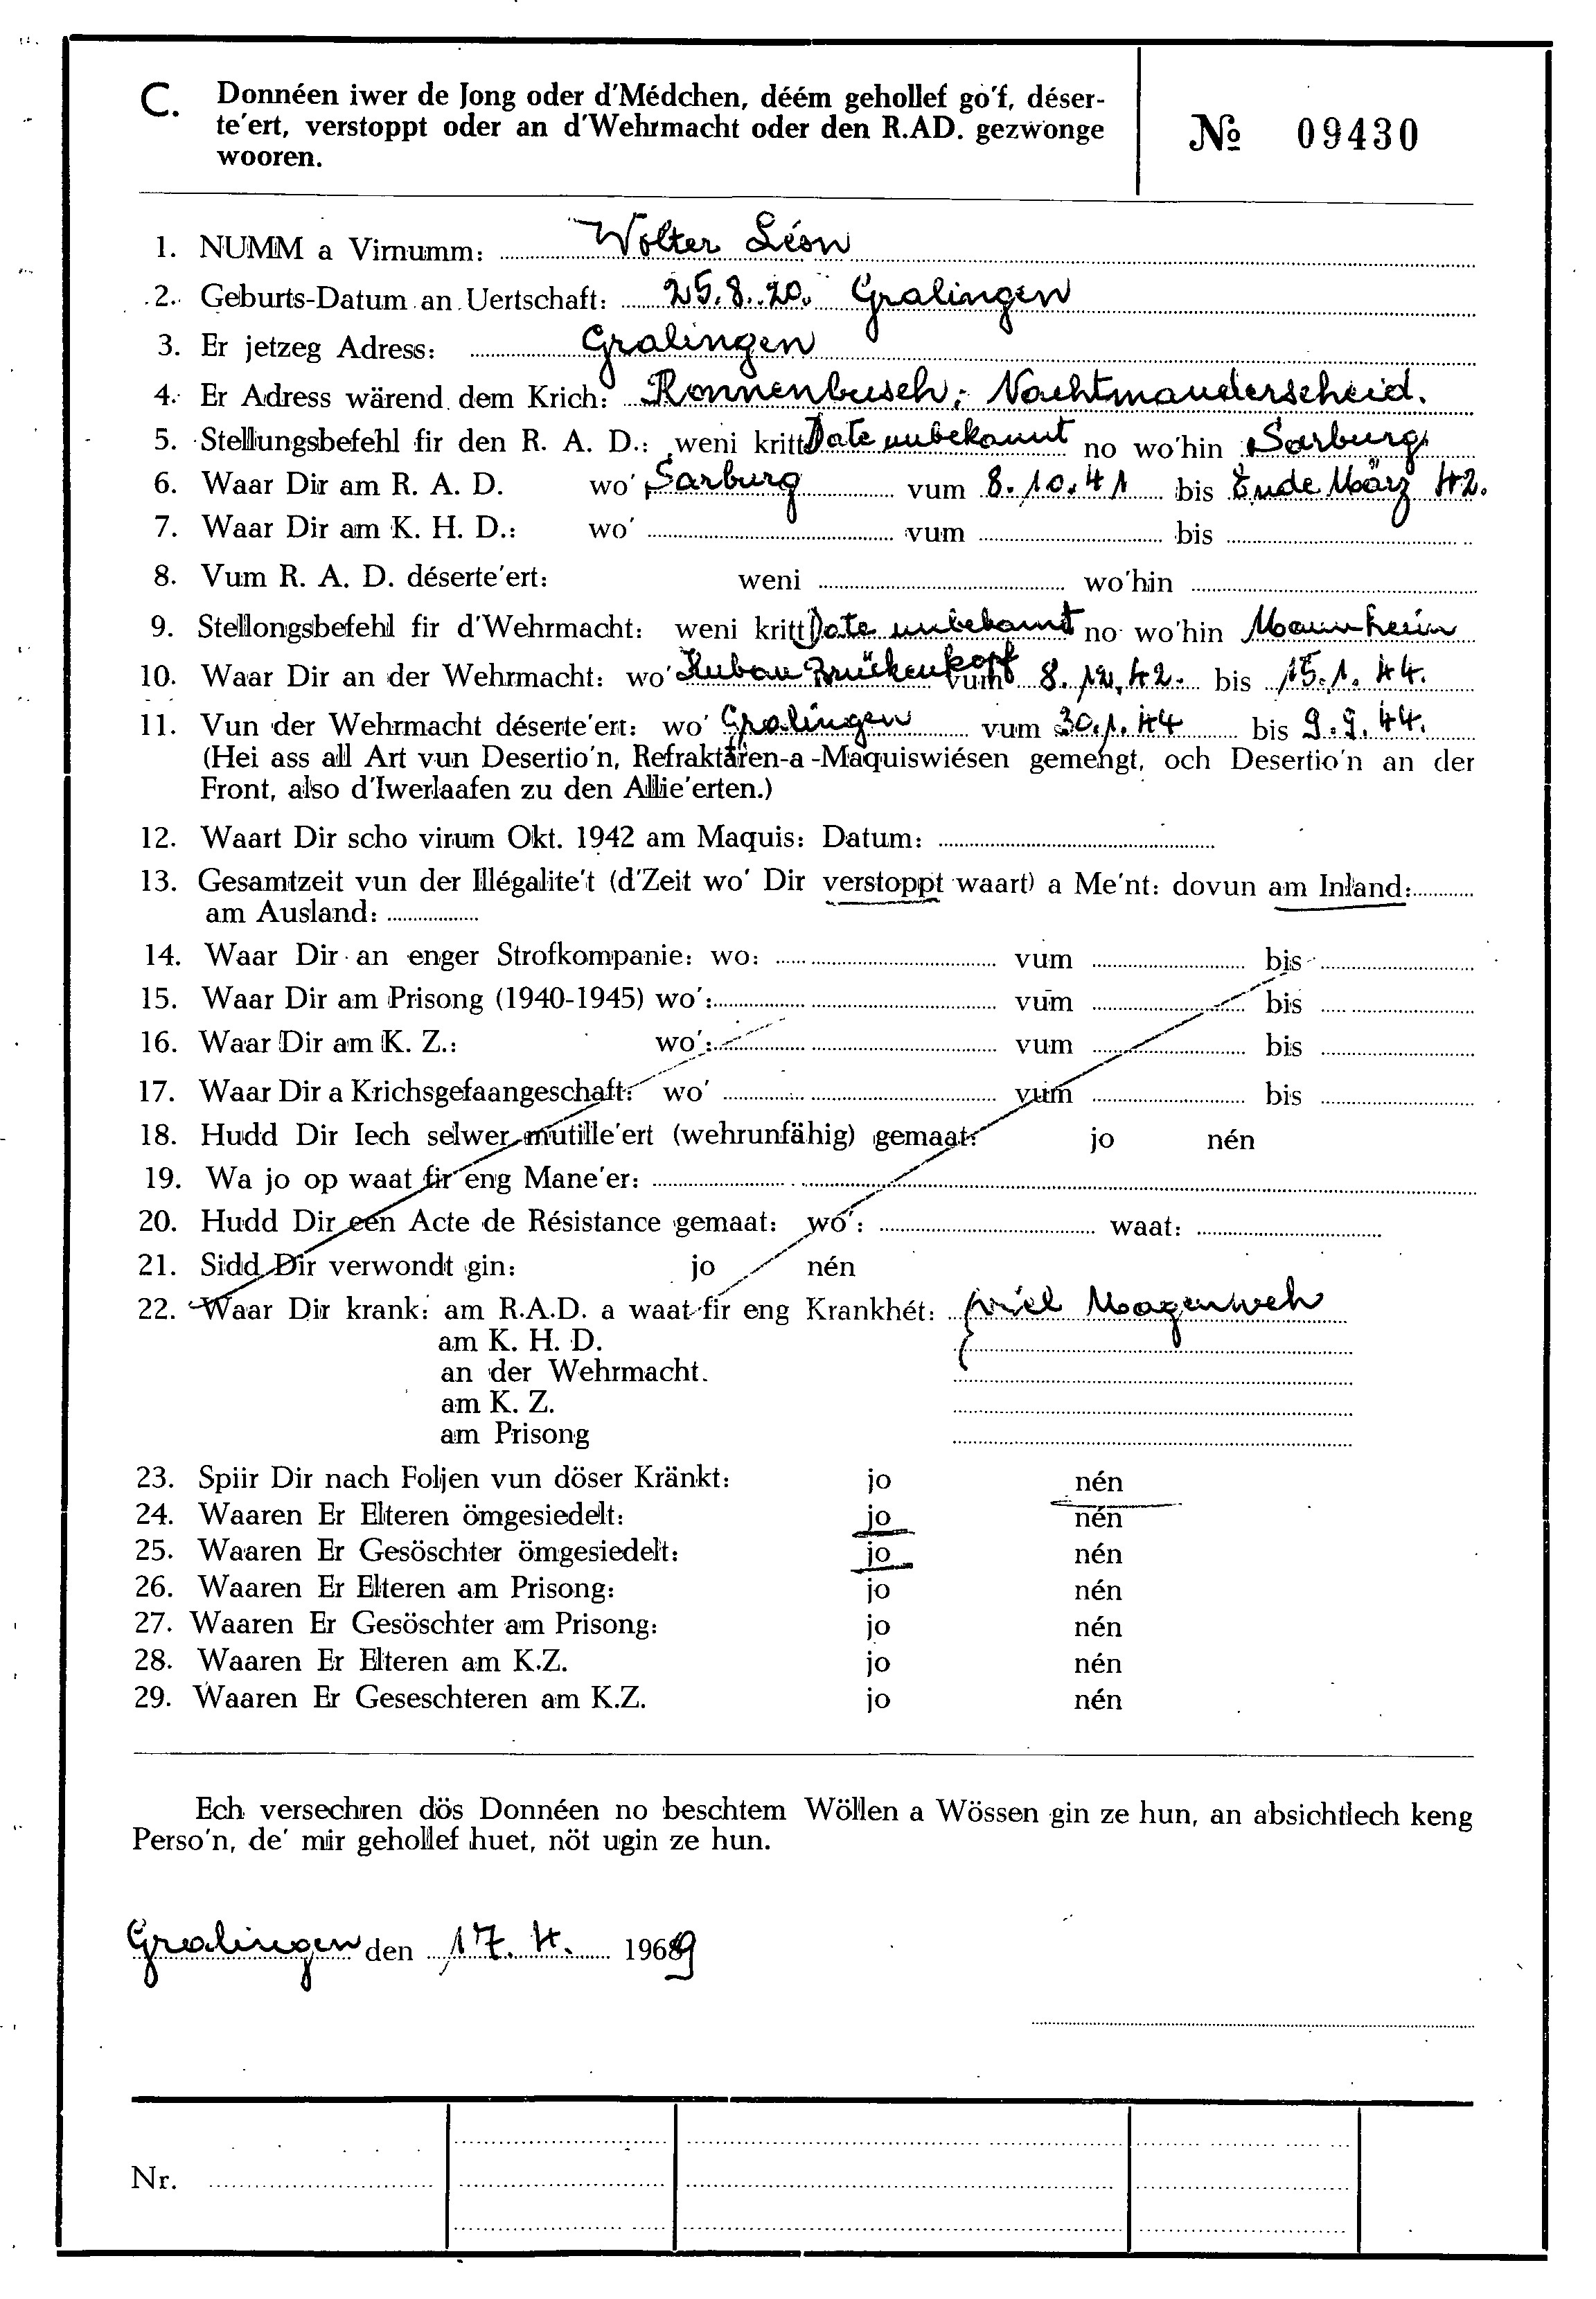 C. Donnéen iwer de Jong oder d'Médchen, déém gehollef go'f, déser-
te'ert, verstoppt oder an d'Wehrmacht oder den R.AD. gezwonge
wooren.
№ 09430
1. NUMM a Virnumm: Wolter Léon
2. Geburts-Datum an Uertschaft: 25.8.20. Gralingen
3. Er jetzeg Adress: Gralingen
4. Er Adress wärend dem Krich: Ronnenbusch; Nachtmanderscheid.
5. Stellungsbefehl fir den R. A. D.: weni kritt Date unbekannt no wo'hin Sarburg
6. Waar Dir am R. A. D. wo' Sarburg vum 8.10.41 bis Ende März 42.
7. Waar Dir am K. H. D.: wo' vum bis
8. Vum R. A. D. déserte'ert: weni wo'hin
9. Stellongsbefehl fir d'Wehrmacht: weni kritt Date unbekannt no wo'hin Mannheim
10. Waar Dir an der Wehrmacht: wo' Kuban Brückenkopf vum 8.12.42. bis 15.1.44.
11. Vun der Wehrmacht déserte'ert: wo' Gralingen vum 30.1.44 bis 9.9.44.
(Hei ass all Art vun Desertio'n, Refraktären-a -Maquiswiésen gemengt, och Desertio'n an der
Front, also d'Iwerlaafen zu den Allie'erten.)
12. Waart Dir scho virum Okt. 1942 am Maquis: Datum:
13. Gesamtzeit vun der Illégalite't (d'Zeit wo' Dir verstoppt waart) a Me'nt: dovun am Inland:
am Ausland:
14. Waar Dir an enger Strofkompanie: wo: vum bis
15. Waar Dir am Prisong (1940-1945) wo': vum bis
16. Waar Dir am K. Z.: wo': vum bis
17. Waar Dir a Krichsgefaangeschaft: wo' vum bis
18. Hudd Dir Iech selwer mutille'ert (wehrunfähig) gemaat: jo nén
19. Wa jo op waat fir eng Mane'er:
20. Hudd Dir een Acte de Résistance gemaat: wo': waat:
21. Sidd Dir verwondt gin: jo nén
22. Waar Dir krank: am R.A.D. a waat fir eng Krankhét: viel Magenweh
am K. H. D.
an der Wehrmacht.
am K. Z.
am Prisong
23. Spiir Dir nach Foljen vun döser Kränkt: jo nén
24. Waaren Er Elteren ömgesiedelt: jo nén
25. Waaren Er Gesöschter ömgesiedelt: jo nén
26. Waaren Er Elteren am Prisong: jo nén
27. Waaren Er Gesöschter am Prisong: jo nén
28. Waaren Er Elteren am K.Z. jo nén
29. Waaren Er Geseschteren am K.Z. jo nén
Ech versechren dös Donnéen no beschtem Wöllen a Wössen gin ze hun, an absichtlech keng
Perso'n, de' mir gehollef huet, nöt ugin ze hun.
Gralingen den 17. 4. 1969
Nr.